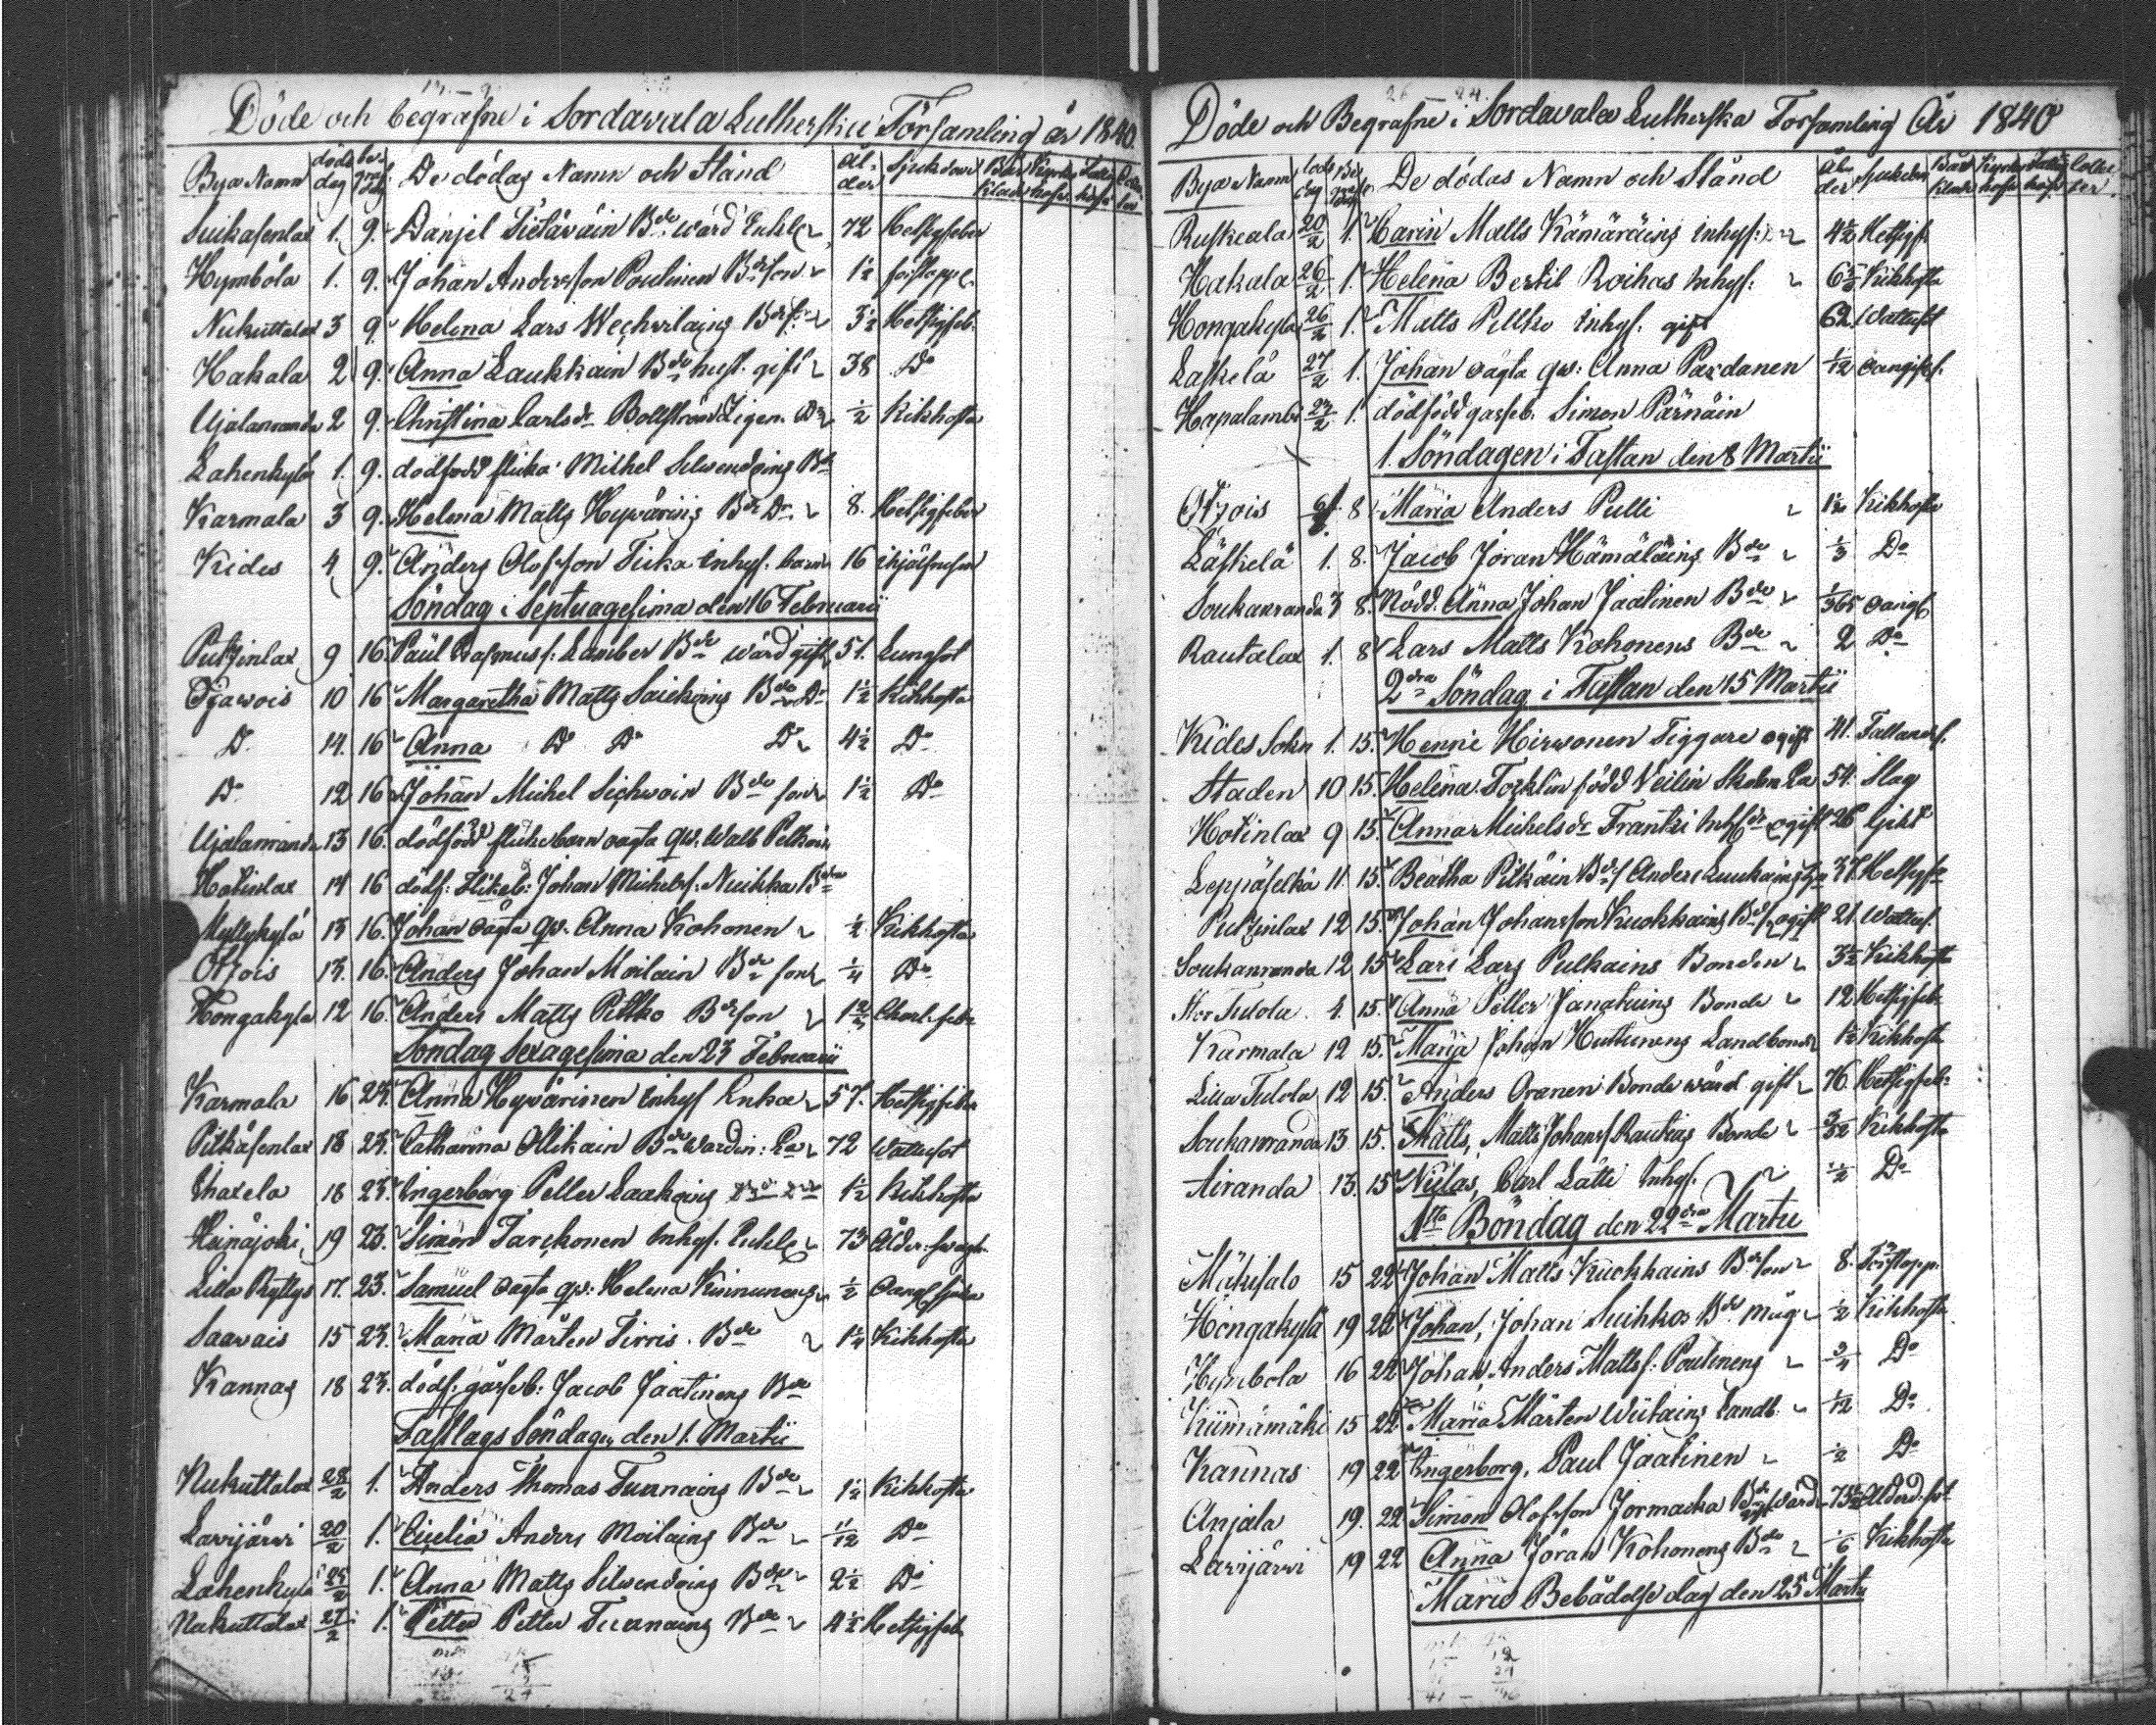 Döde och begrafne i Sordavala Lutherska Församling år 1840.
Bya Namn döds dag be- graf. dag De dödas Namn och Stånd ål- der Sjukdom
Suikasenlax 1. 9. Danjel Bde wärd Enkl. 72 Hetsigfeber
Hymbola 1. 9. Johan Andersson Poutinen Bdeson 1½ förstopp.
Nukuttalax 3 9. Helena Lars Bde 3½ Hetsigfeb.
Hakala 2 9. Anna Laukkain Bde hust. gift 38 Do
Ujalanranda 2 9. Christina Carlsdr Bollström ½ Kikhosta
Lahenkylä 1. 9. dödfödd flicka Michel Silvendoins Bde
Karmala 3 9. Helena Matts Hyvärins Bde Dr 8. Hetsigfeber
Kides 4 9. Anders Olofsson Tuka inhys. barn 16 ihjälfrusen
Söndag i Septuagesima den 16 Februarii
Putzinlax 9 16. Paul Rasmuss. Lamber Bde wärd gift 51. Lungsot
Otzois 10 16 Margaretha Matts Bde Dr 1½ Kikhosta
Do 14. 16 Anna Do Do Dr 4½ Do
Do 12 16 Johan Michel Sichvoin Bde son 1½ Do
Ujalanranda 13 16. dödfödd flickebarn oägta qv. Walb Pelkoin
Hotinlax 14 16 dödf. flickeb: Johan Michelss. Nuikka Bde
Myllykylä 13 16. Johan oägta qv. Anna Kohonen ½ Kikhosta
Otzois 13. 16. Anders Johan Moilain Bde son ¼ Do
Hongakylä 12 16. Anders Matts Pitko Bdeson
Söndag Sexagesima den 23 Februarii
Karmala 16 23. Anna Hyvärinen inhys Enka 57. Hetsigfeber
Pitkäsenlax 18 23. Catharina Ollikain Bde wardin: Ea 72 Wattusot
18 23. Ingerborg Petter Laakoins 1½ Kikhosta
Heinäjoki 19 23. Simon Tarckonen inhys. Enkl. 73 Ålder. swagh.
Lilla Ryttys 17. 23. Samuel oägta qv: Helena Kinnunens ½ Oang sjuka
Saavais 15 23. Maria Mårten Tirris Bde 1¼ Kikhosta
Kannas 18 23. dödf: gåsseb: Jacob Jaatinens Bde
Fastlags Söndagen den 1. Martii
Nukuttalax 28/2 1. Anders Thomas Tuunains Bde 1½ Kikhosta
Lavijärvi 20/2 1. Cicilia Anders Moilains Bde 11/12 Do
Lahenkylä 25/2 1. Anna Matts Silvendoins Bde 2½ Do
Nukuttalax 27/2 1. Petter Petter Tuunains Bde 4½ Hetsigfeb.
Döde och Begrafne i Sordavala Lutherska Forsamling År 1840
Bya Namn De dödas Namn och Stånd Ål- der Sjukdom
Ruskeala 20/2 1. Carin Matts Kämäräins inhys: 4½ Hetsigf.
Hakala 26/2 1. Helena Bertil Roihas inhys: Kikhosta
Hongakylä 26/2 1. Matts Pitko inhys. gift 62 Wattusot
Laskelä 27/2 1. Johan oägta qw: Anna Pardanen 1/12 oangifs.
Hapalambi 23/2 1. dödfödd gasseb. Simon Pärnäin
1. Söndagen i Fastan den 8 Martii
Otzois 8 Maria Anders Pulli Kikhosta
Läskelä 1. 8. Jacob Jöran Hämäläins Bde ⅓ Do
Soukanranda 3 8. Nödd. Anna Johan Jaatinen Bde 1/365 oangif
Rautalax 1. 8 Lars Matts Kohonens Bde 2 Do
2dra Söndag i Fastan den 15 Martii
Kides Sokn 1. 15. Henric Hirwonen Tiggare ogift 41.
Staden 10 15. Helena Torklin född Veilin 54. Slag
Hotinlax 9 15. Anna Michelsdr Frantsi Inhys dr ogift 26 Gikt
Leppäselkä 11. 15. Beatha Pitkäin 37 Hetsigfe
Putzinlax 12 15. Johan Johansson Kuokkains Bdes ogift 21. Wattus.
Soukanranda 12 15 Lars Lars Pulkains Bonden 3½ Kikhosta
Stor Tulola 4. 15. Anna Petter Janatuins Bonde 12 Hetsigfeb.
Karmala 12 15. Maria Johan Huttunens Landbonde 1½ Kikhosta
Lilla Tulola 12 15. Anders Oranen Bonde wärd gift 76 Hetsigfeb.
Soukanranda 13 15. Matts, Matts Johanss Rautias Bonde Kikhosta
Airanda 13. 15 Niclas, Carl Lätti Inhys. ½ Do
1sta Böndag den 22dra Martii
Mäkisalo 15 22 Johan Matts Kuokkains Bdeson 8. Förstopp.
Hongakylä 19 22 Johan, Johan Suikkos Bde måg ½ Kikhosta
Hymbola 16 22 Johan, Anders Mattss: Poutinens ¾ Do
Kiimämäki 15 22 Maria Mårten Wiitains Landb. 1/12 Do
Kannas 19 22 Ingerborg, Paul Jaatinen ½ Do
Anjala 19. 22 Simon Olofsson Jormacka Bde wärd gift
Lavijärvi 19 22 Anna Jöran Kohonens Bde 1/6 Kikhosta
Mariæ Bebådelse dag den 25 Martii